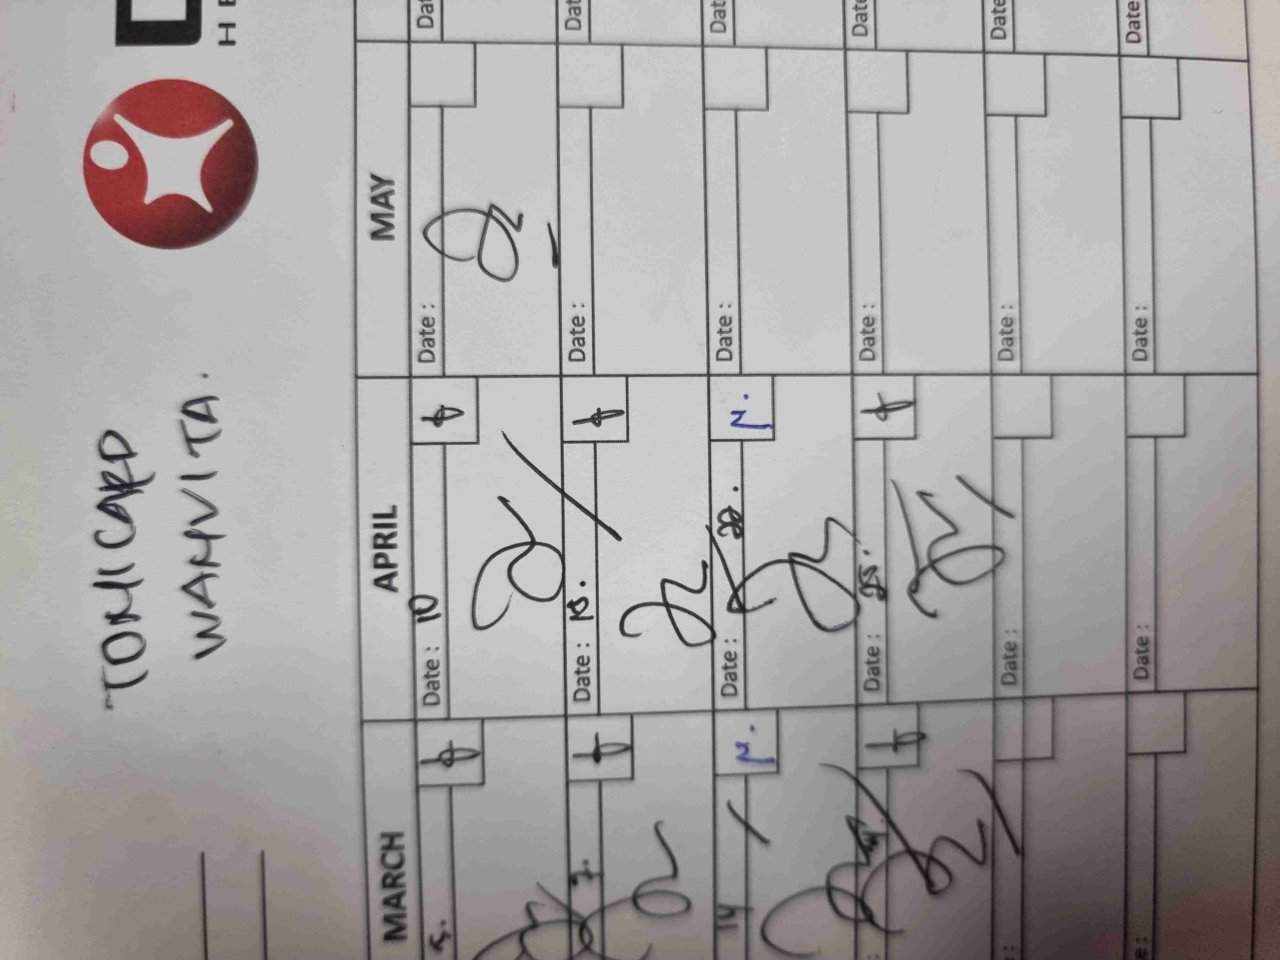 TOMICARD
WAMVITA.
MARCH
APRIL
MAY
5.
Date: 10
Date :
Dat
7.
Date : 15.
Date :
Dat
14
Date : 20.
Date :
Dat
Date : 25.
Date :
Date
:
Date :
Date :
Date
e :
Date :
Date :
Date